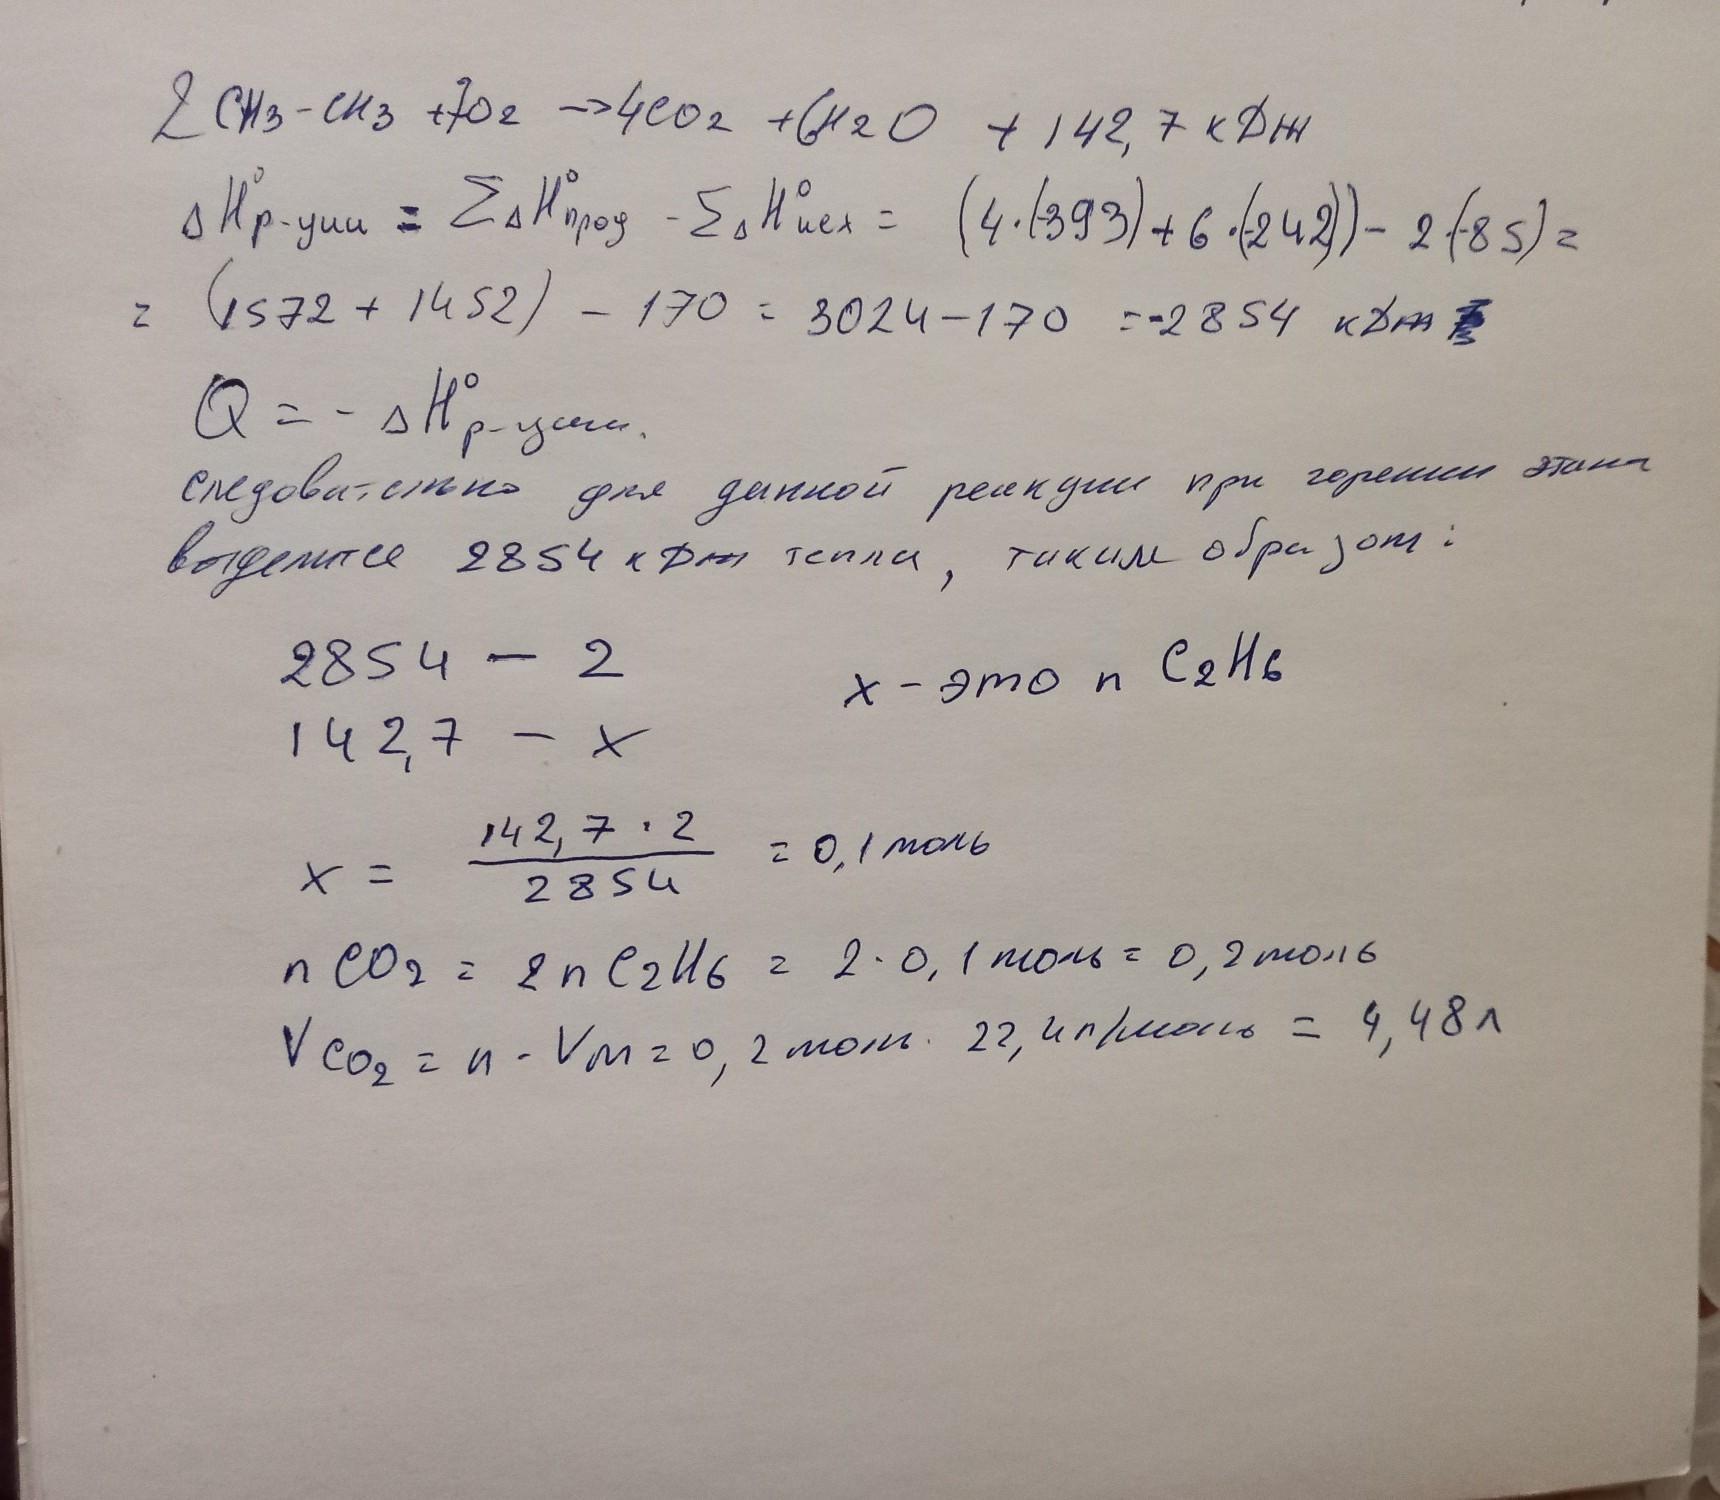 2CH3-CH3 +7O2 → 4CO2 + 6H2O + 142,7 кДж
ΔH°р-ции = ΣΔH°прод - ΣΔH°исх = (4·(-393)+6·(-242))- 2·(-85)=
= (1572 + 1452) - 170 = 3024-170 = -2854 кДж
Q = - ΔH°р-ции.
следовательно для данной реакции при горении этана
выделится 2854 кДж тепла, таким образом:
2854 - 2
x - это n C2H6
142,7 - x
x = 142,7 · 2 / 2854 = 0,1 моль
n CO2 = 2 n C2H6 = 2·0,1 моль = 0,2 моль
V CO2 = n · Vm = 0,2 моль · 22,4 л/моль = 4,48 л